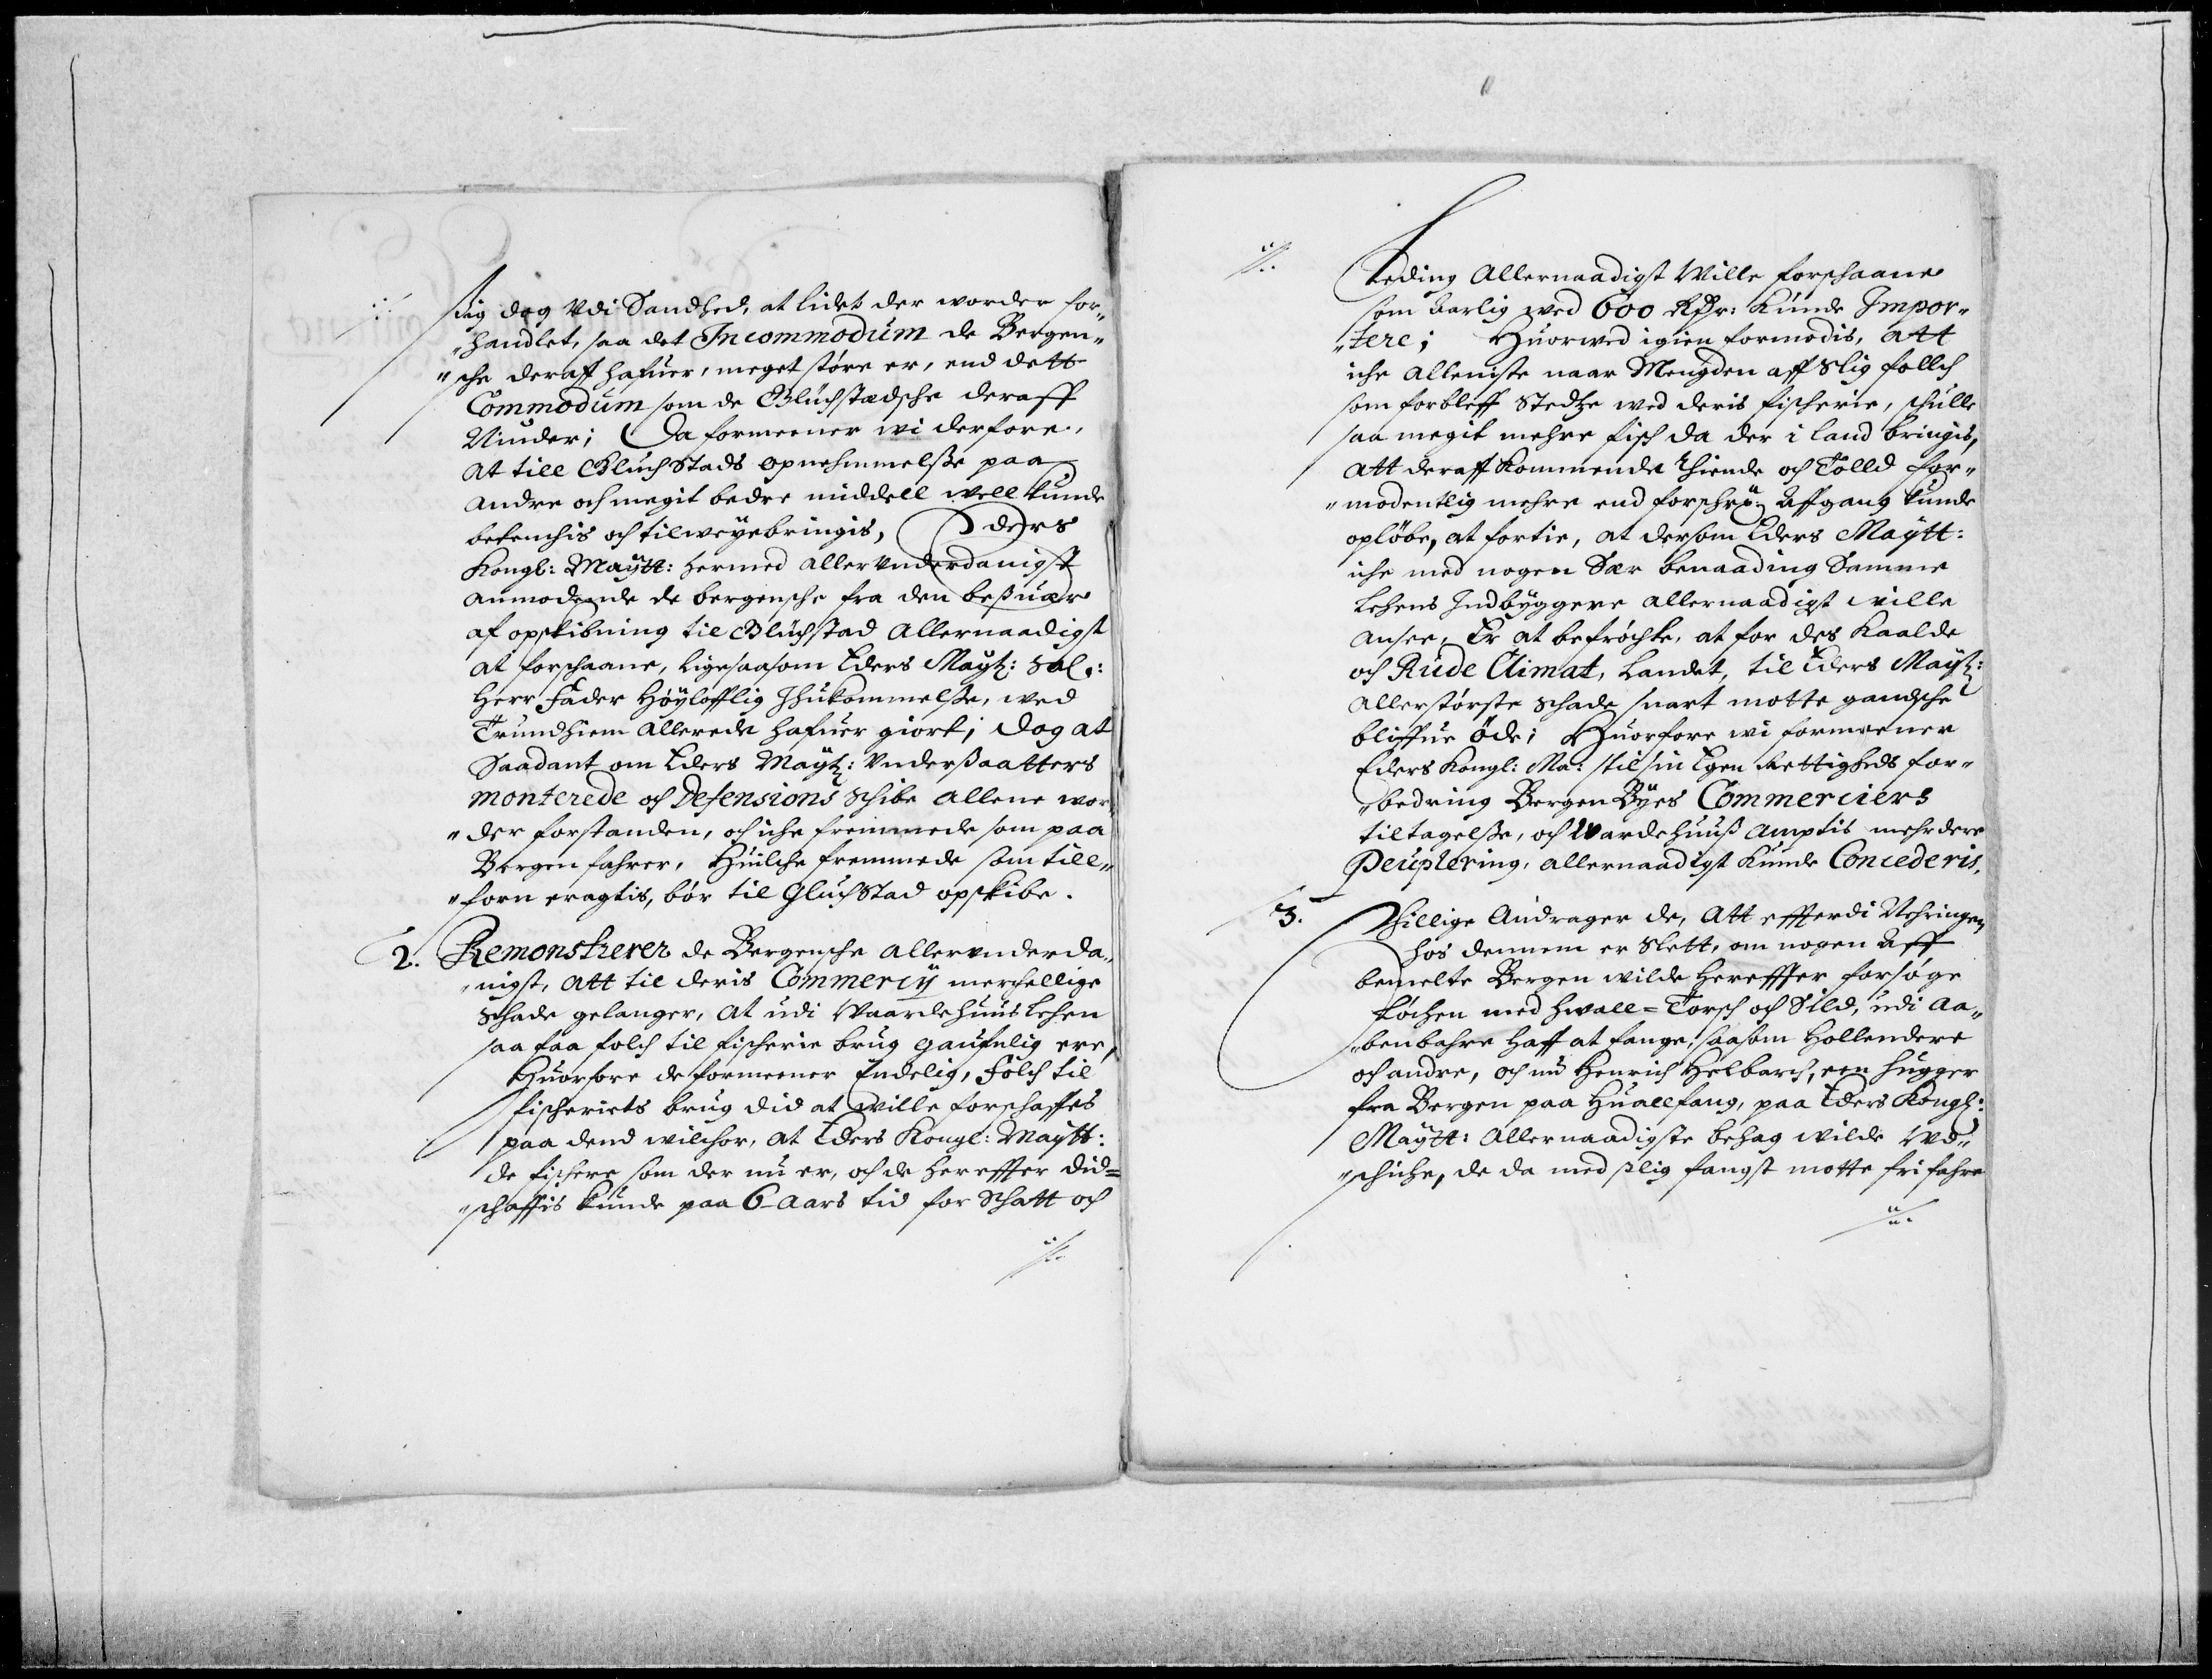 sig dog Udi Sandhed, at lidet der worder for„
„handlet, saa det Incommodum de Bergen„
„sche deraff hafuer, meget støre er, end dett
Commodum som de Glückstadsche deraff
Niuder; Da formeener wi derfore,
At till GlückStads opnehmmelsse paa
andre och megit bedre middell well kunde
betenchis och tilweyebringis, Eders
Kongl: Maÿtt: hermed allerunderdanigst
anmodende de bergensche fra den beßuær
af opskibning til Glückstad Allernaadigst
at forschaane, ligesaasom Eders Maÿtz: Sal:
Herr Fader Høylofflig Ihukommelsse, wed
Trundhiem allerede hafuer giort; Dog at
Saadant om Eders Maÿtz: Underßaatters
monterede och Defensions Schibe allene wor„
„der forstanden, och iche fremmede som paa
Bergen fahrer, Huilche fremmede som till„
„forn eragtis, bør til GluchStad opskibe.
2. Remonstrerer de Bergensche allerunderda„
„nigst, att til deris Commercÿ merchellige
Schade gelanger, at udi Waardehuus Lehen
saa faa folch til fischerie brug gaufnlig ere,
Huorfore de formeener Endelig, Folch til
fischeriets brug did at wille forschaffes
paa dend wilchor, at Eders Kongl: Maÿtt:
de fischere som der nu er, och de hereffter did=
„schaffis kunde paa 6 Aars tid for Schatt och
·/.
·/.
Leding Allernaadigst Wille forschaane
som Aarlig wed 600 Rdr: Kunde Impor„
„tere; Huorwed igien formodis, att
iche alleniste naar Mengden aff Slig follch
som forbleff Stedtze wed deris fischerie, schulle
saa megit mehre fisch da der i land bringis,
att deraff kommende Thiende och Tolld for„
„modentlig mehre end forschre: Affgang kunde
opløbe, at fortie, at dersom Eders Maÿtt:
iche med nogen Sær benaading Samme
Lehens Indbyggere allernaadigst wille
ansee, Er at befrøchte, at for des Kaalde
och Rude Climat, Landet, til Eders Maÿtz:
Allerstørste Schade snart motte gandsche
bliffue øde; Huorfore wi formeener
Eders Kongl: Ma: til sin Egen Rettigheds for„
„bedring Bergen Byes Commerciers
tiltagelsse, och Wardehuuß Amptis mehrdere
Peuplering, allernaadigst Kunde Concederis.
3. Thillige Andrager de, Att effterdi Nehringen
hos dennem er Slett, om nogen Aff
bemelte Bergen wilde hereffter forsøge
løchen med hwall=Torsch och Sild, udi Aa„
„benbahre haff at fange, saasom Hollendere
och andre, och nu Henrich Helbarch, een hugger
fra Bergen paa Huallfang, paa Eders Kongl:
Maÿtt: Allernaadigste behag wilde Wd„
„schiche, de da med slig fangst motte frifahre
·/.